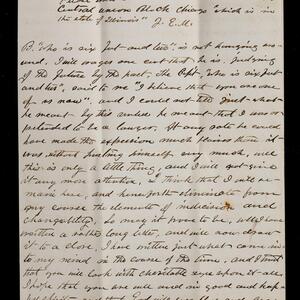 Central Union Block Chicago "which is in
the state of Illinois" J. E. M.
B. "Who is six foot and two", is not hunging around, I will wager one cent that he is. Judging
of the future by the past, the Capt. "Who is six foot
and two", said to me "I believe that you are one
of us now", and I could not tell just what
he meant by this unless he meant that I was or
pretended to be a lawyer. At any rate he could
have made the expression much plainer than it
was without hurting himself very much, and
this is only a little thing, and I will not give
it any more attention. I think that I will remain here and henceforth eliminate from
my course the elements of indecision and
changability. So may it prove to be, well I have
written a rather long letter, and will now draw
it to a close, I have written just what came in
to my mind in the course of the time, and I trust
that you will look with charitable eyes upon it all.
I hope that you are well and in good and